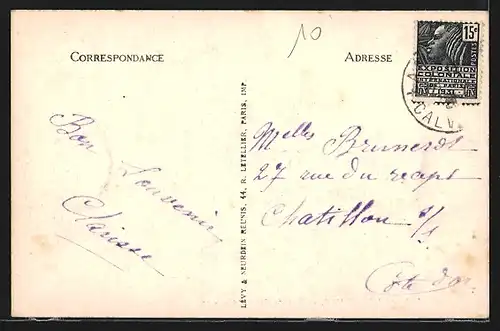 10
CORRESPONDANCE
ADRESSE
15c
POSTES
EXPOSITION
COLONIALE
INTERNATIONALE
PARIS
1931
CALV
Bon
Souvenir
Clarisse
LÉVY & NEURDEIN RÉUNIS, 44, R. LETELLIER, PARIS, IMP
Melles
27 rue du
Chatillon s/s
Côte d'or